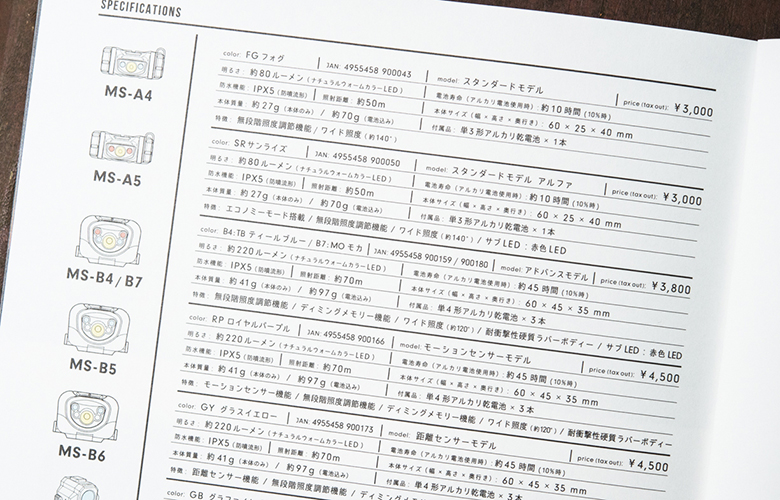 SPECIFICATIONS
MS-A4
color: FG フォグ JAN: 4955458 900043 model: スタンダードモデル price (tax out): ¥3,000
明るさ: 約80ルーメン (ナチュラルウォームカラーLED) 電池寿命 (アルカリ電池使用時): 約10時間 (10%時)
防水機能: IPX5 (防噴流形) 照射距離: 約50m 本体サイズ (幅 × 高さ × 奥行き): 60 × 25 × 40 mm
本体質量: 約27g (本体のみ) / 約70g (電池込み) 付属品: 単3形アルカリ乾電池 × 1本
特徴: 無段階照度調節機能 / ワイド照度 (約140°)
MS-A5
color: SR サンライズ JAN: 4955458 900050 model: スタンダードモデル アルファ price (tax out): ¥3,000
明るさ: 約80ルーメン (ナチュラルウォームカラーLED) 電池寿命 (アルカリ電池使用時): 約10時間 (10%時)
防水機能: IPX5 (防噴流形) 照射距離: 約50m 本体サイズ (幅 × 高さ × 奥行き): 60 × 25 × 40 mm
本体質量: 約27g (本体のみ) / 約70g (電池込み) 付属品: 単3形アルカリ乾電池 × 1本
特徴: エコノミーモード搭載 / 無段階照度調節機能 / ワイド照度 (約140°) / サブLED: 赤色LED
MS-B4 / B7
color: B4: TB ティールブルー / B7: MO モカ JAN: 4955458 900159 / 900180 model: アドバンスモデル price (tax out): ¥3,800
明るさ: 約220ルーメン (ナチュラルウォームカラーLED) 電池寿命 (アルカリ電池使用時): 約45時間 (10%時)
防水機能: IPX5 (防噴流形) 照射距離: 約70m 本体サイズ (幅 × 高さ × 奥行き): 60 × 45 × 35 mm
本体質量: 約41g (本体のみ) / 約97g (電池込み) 付属品: 単4形アルカリ乾電池 × 3本
特徴: 無段階照度調節機能 / ディミングメモリー機能 / ワイド照度 (約120°) / 耐衝撃性硬質ラバーボディー / サブLED: 赤色LED
MS-B5
color: RP ロイヤルパープル JAN: 4955458 900166 model: モーションセンサーモデル price (tax out): ¥4,500
明るさ: 約220ルーメン (ナチュラルウォームカラーLED) 電池寿命 (アルカリ電池使用時): 約45時間 (10%時)
防水機能: IPX5 (防噴流形) 照射距離: 約70m 本体サイズ (幅 × 高さ × 奥行き): 60 × 45 × 35 mm
本体質量: 約41g (本体のみ) / 約97g (電池込み) 付属品: 単4形アルカリ乾電池 × 3本
特徴: モーションセンサー機能 / 無段階照度調節機能 / ディミングメモリー機能 / ワイド照度 (約120°) / 耐衝撃性硬質ラバーボディー
MS-B6
color: GY グラスイエロー JAN: 4955458 900173 model: 距離センサーモデル price (tax out): ¥4,500
明るさ: 約220ルーメン (ナチュラルウォームカラーLED) 電池寿命 (アルカリ電池使用時): 約45時間 (10%時)
防水機能: IPX5 (防噴流形) 照射距離: 約70m 本体サイズ (幅 × 高さ × 奥行き): 60 × 45 × 35 mm
本体質量: 約41g (本体のみ) / 約97g (電池込み) 付属品: 単4形アルカリ乾電池 × 3本
特徴: 距離センサー機能 / 無段階照度調節機能 / ディミング
color: GB